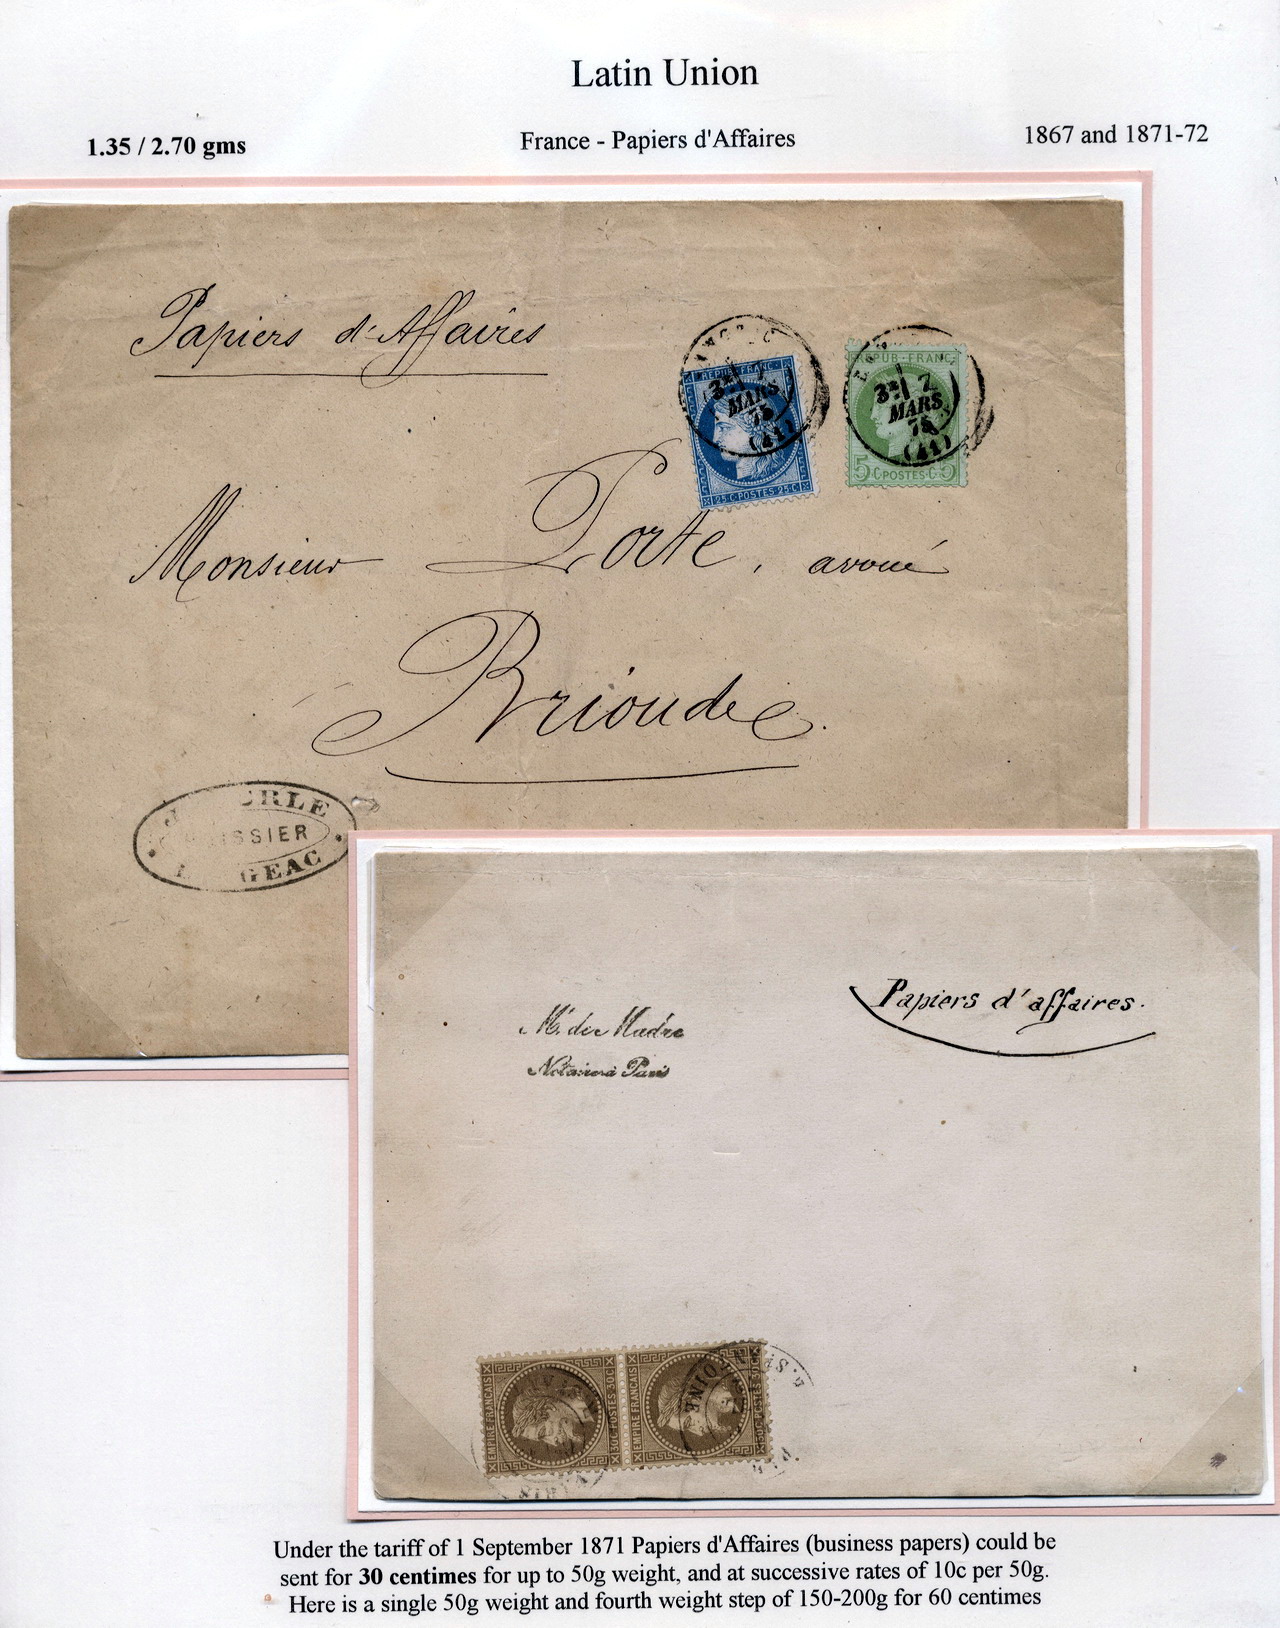 Latin Union
1.35 / 2.70 gms
France - Papiers d'Affaires
1867 and 1871-72
Papiers d'Affaires
REPUB · FRANC
25 C · POSTES · 25 C
3E 7
MARS
75
(41)
REPUB · FRANC
5 C · POSTES · C 5
3E 7
MARS
75
(41)
Monsieur Porte, avoué
Brioude
HUISSIER
GEAC
Papiers d'affaires.
Notaire à Paris
EMPIRE FRANÇAIS
30C POSTES 30C
EMPIRE FRANÇAIS
30C POSTES 30C
Under the tariff of 1 September 1871 Papiers d'Affaires (business papers) could be
sent for 30 centimes for up to 50g weight, and at successive rates of 10c per 50g.
Here is a single 50g weight and fourth weight step of 150-200g for 60 centimes